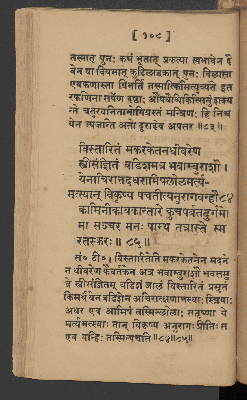 [ १०८ ]
तस्मात् पुनः कथं भूतात् प्रकृत्या स्वभावेन दै
वेन वा विषमात् कुटिलाद्वक्रात् पुनः विलासा
एव फणास्ता बिभर्ति तस्मात्किमित्युच्यते इत
रफणिना सर्पेण दष्टः औषधैश्चिकित्सितुं शक्य
ते चतुरवनिताभोगिग्रस्तं मन्त्रिणः हि निश्च
येन त्यजन्ति अतो दूरादेव अपसर ॥८३॥
विस्तारितं मकरकेतनधीवरेण
स्त्रीसंज्ञितं बडिशमत्र भवाम्बुराशौ ।
येनाचिरात्तदधरामिषलोलमर्त्य-
मत्स्यान् विकृष्य पचतीत्यनुरागवह्नौ८४
कामिनीकायकान्तारे कुचपर्वतदुर्गमे।
मा संचर मनः पान्थ तत्रास्ते स्म
रतस्करः ॥ ८५ ॥
सं० टी० । विस्तारितेति मकरकेतनेन मदने
न धीवरेण कैवर्तकेन अत्र भवाम्बुराशौ भवसमु
द्रे स्त्रीसंज्ञितम् बडिशं जालं विस्तारितं प्रसृतं
किमर्थं येन बडिशेन अचिरात्क्षणात्तस्याः स्त्रियाः
अधर एव आमिषं तस्मिन्लोलाः सतृष्णा ये
मर्त्यमत्स्याः तान् विकृष्य अनुरागः प्रीतिः स
एव वन्हिः तस्मिन्पचति ॥८४॥८५॥